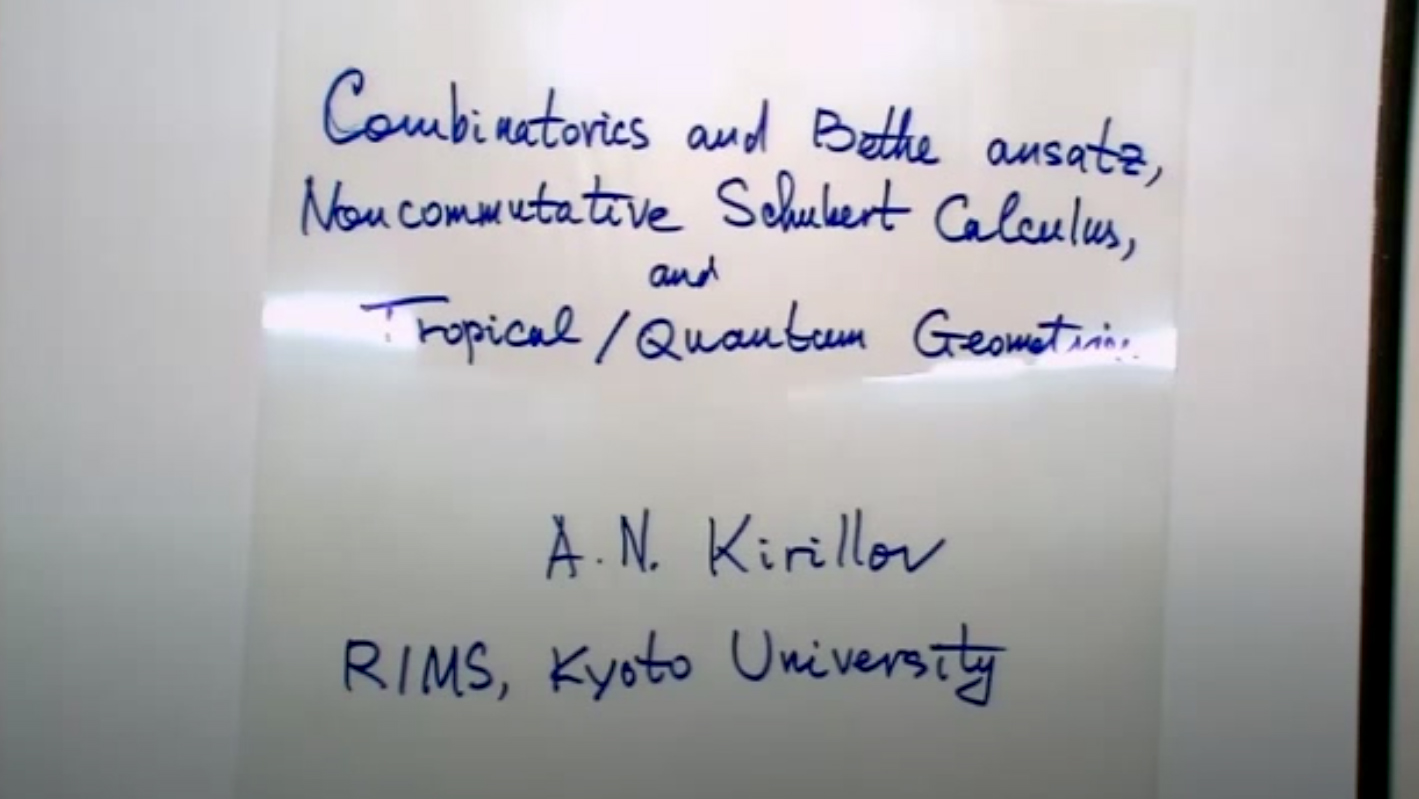 Combinatorics and Bethe ansatz,
Noncommutative Schubert Calculus,
and
Tropical / Quantum
A. N. Kirillov
RIMS, Kyoto University